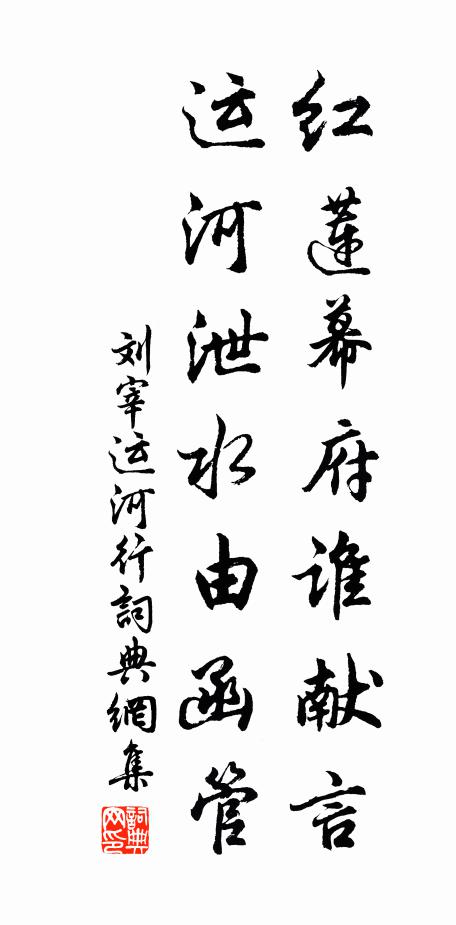 红莲幕府谁献言
运河泄水由函管
刘宰运河行詞典網集
詞典网印